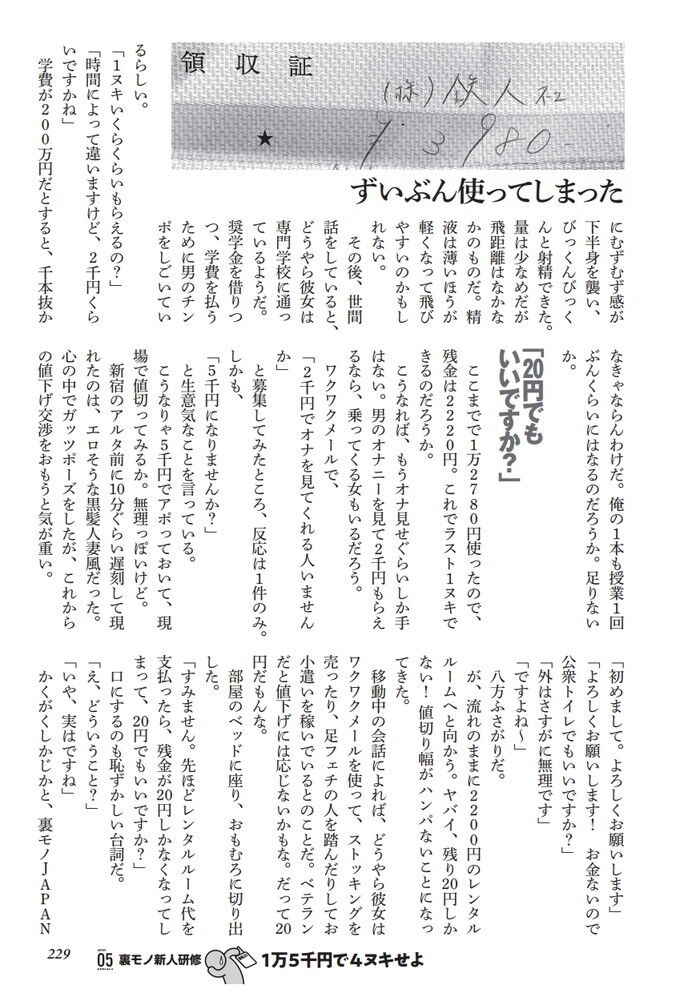 領収証
(株)鉄人社
★
¥3,980-
ずいぶん使ってしまった
にむずむず感が
下半身を襲い、
びっくんびっく
んと射精できた。
量は少なめだが
飛距離はなかな
かのものだ。精
液は薄いほうが
軽くなって飛び
やすいのかもし
れない。
その後、世間
話をしていると、
どうやら彼女は
専門学校に通っ
ているようだ。
奨学金を借りつ
つ、学費を払う
ために男のチン
ポをしごいてい
るらしい。
「1ヌキいくらくらいもらえるの？」
「時間によって違いますけど、2千円くら
いですかね」
学費が200万円だとすると、千本抜か
なきゃならんわけだ。俺の1本も授業1回
ぶんくらいにはなるのだろうか。足りない
か。
「20円でも
いいですか？」
ここまでで1万2780円使ったので、
残金は2220円。これでラスト1ヌキで
きるのだろうか。
こうなれば、もうオナ見せぐらいしか手
はない。男のオナニーを見て2千円もらえ
るなら、乗ってくる女もいるだろう。
ワクワクメールで、
「2千円でオナを見てくれる人いません
か」
と募集してみたところ、反応は1件のみ。
しかも、
「5千円になりませんか？」
と生意気なことを言っている。
こうなりゃ5千円でアポっておいて、現
場で値切ってみるか。無理っぽいけど。
新宿のアルタ前に10分ぐらい遅刻して現
れたのは、エロそうな黒髪人妻風だった。
心の中でガッツポーズをしたが、これから
の値下げ交渉をおもうと気が重い。
「初めまして。よろしくお願いします」
「よろしくお願いします！　お金ないので
公衆トイレでもいいですか？」
「外はさすがに無理です」
「ですよね～」
八方ふさがりだ。
が、流れのままに2200円のレンタル
ルームへと向かう。ヤバイ、残り20円しか
ない！値切り幅がハンパないことになっ
てきた。
移動中の会話によれば、どうやら彼女は
ワクワクメールを使って、ストッキングを
売ったり、足フェチの人を踏んだりしてお
小遣いを稼いでいるとのことだ。ベテラン
だと値下げには応じないかもな。だって20
円だもんな。
部屋のベッドに座り、おもむろに切り出
した。
「すみません。先ほどレンタルルーム代を
支払ったら、残金が20円しかなくなってし
まって、20円でもいいですか？」
口にするのも恥ずかしい台詞だ。
「え、どういうこと？」
「いや、実はですね」
かくがくしかじかと、裏モノJAPAN
229
05
裏モノ新人研修
1万5千円で4ヌキせよ